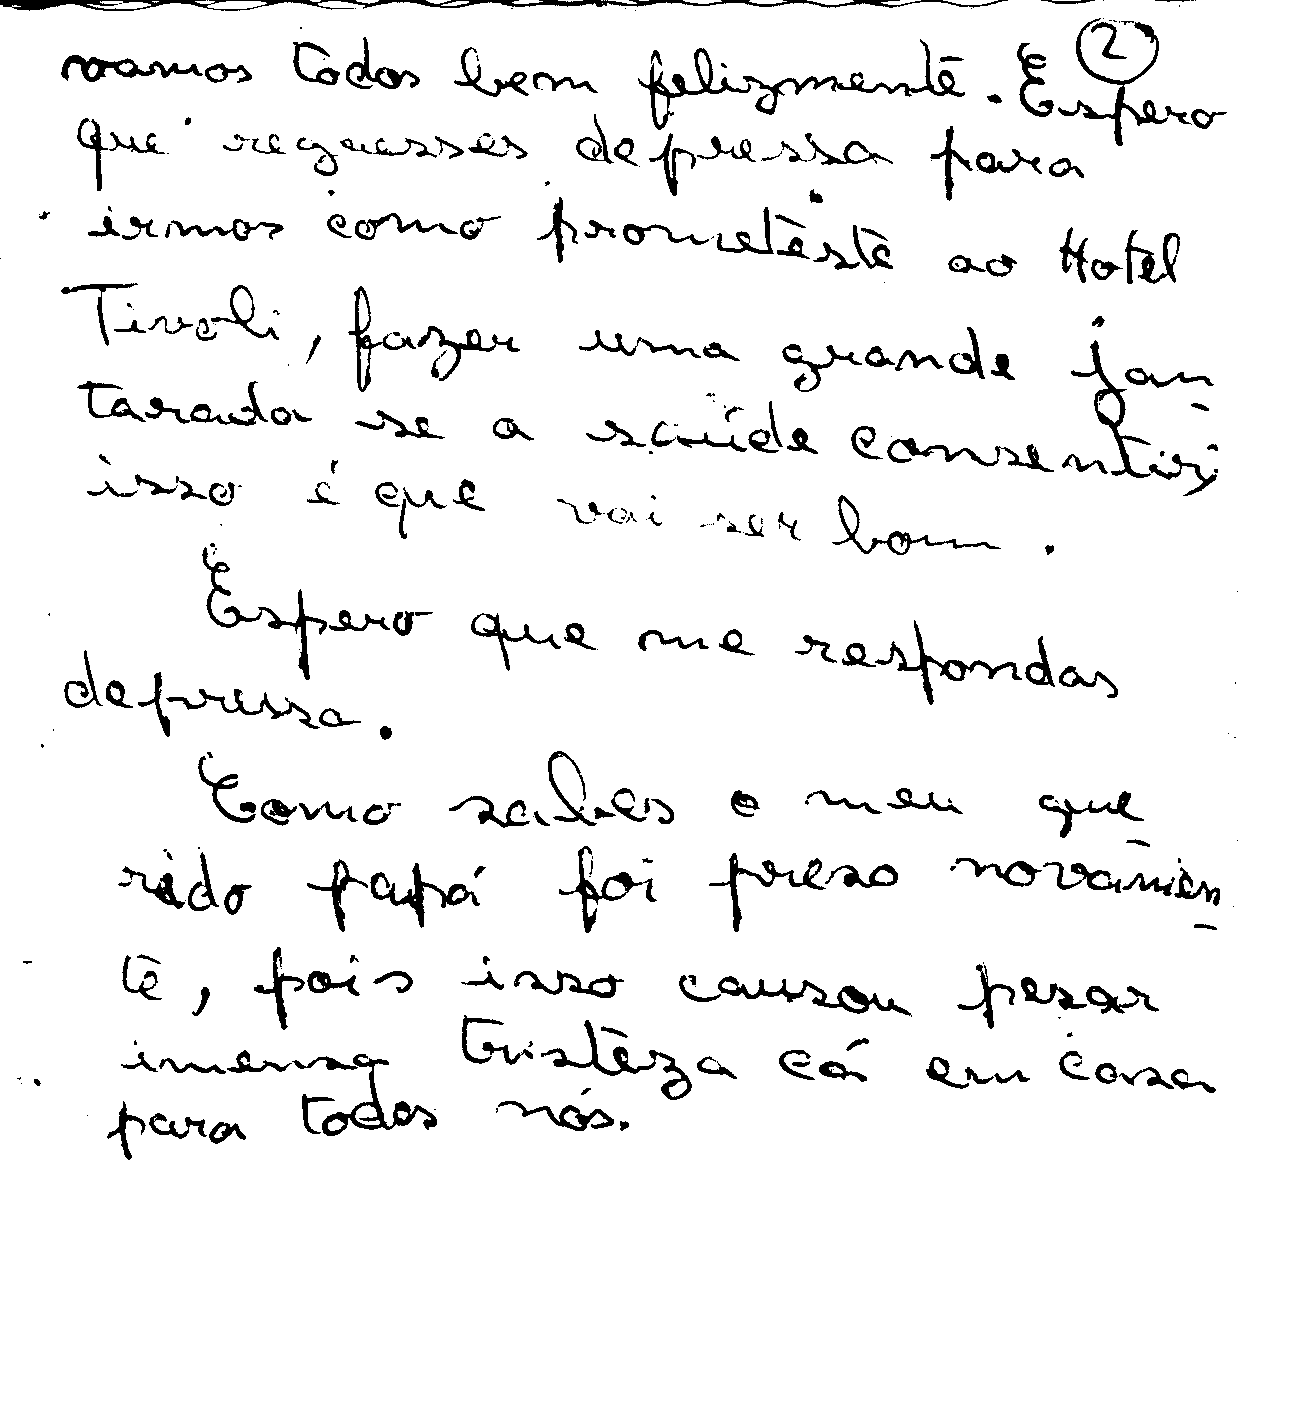 2
vamos todos bem felizmente. Espero
que reguesses depressa para
irmos como prometeste ao Hotel
Tivoli, fazer uma grande jan
tarada se a saúde consentir;
isso é que vai ser bom.
Espero que me respondas
depressa.
Como sabes o meu que
rido papá foi preso novamen
te, pois isso causou pesar
imensa tristeza cá em casa
para todos nós.